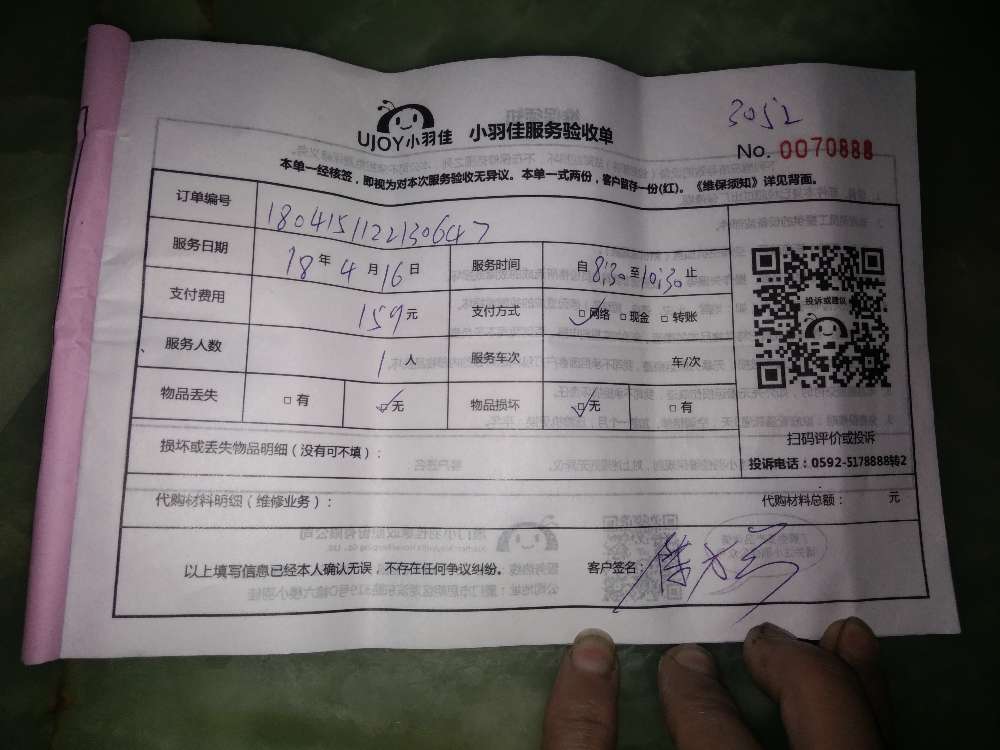 3052
UJOY小羽佳 小羽佳服务验收单
No. 0070888
本单一经核签，即视为对本次服务验收无异议。本单一式两份，客户留存一份(红)。《维保须知》详见背面。
订单编号 180415112213 0647
服务日期 18年4月16日 服务时间 自8:30至10:30止
支付费用 159元 支付方式 ☑网络 □现金 □转账
投诉或建议
服务人数 1人 服务车次 车/次
物品丢失 □有 ☑无 物品损坏 ☑无 □有
扫码评价或投诉
损坏或丢失物品明细（没有可不填）：
投诉电话：0592-5178888转2
代购材料明细（维修业务）： 代购材料总额： 元
以上填写信息已经本人确认无误，不存在任何争议纠纷。 客户签名：